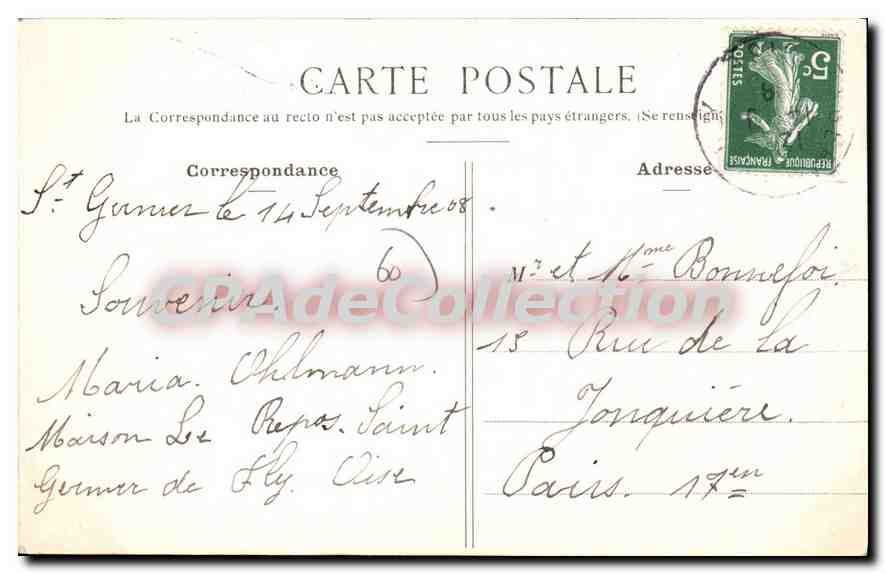 CARTE POSTALE
La Correspondance au recto n'est pas acceptée par tous les pays étrangers. (Se renseign
Correspondance
St Germer le 14 Septembre 08.
60
Souvenir.
Maria. Ohlmann.
Maison Le Repos. Saint
Germer de Fly. Oise
Adresse
Mr et Mme Bonnefoi.
13 Rue de la
Jonquière.
Pairs. 17en
5c
POSTES
REPUBLIQUE FRANÇAISE
CPAdeCollection